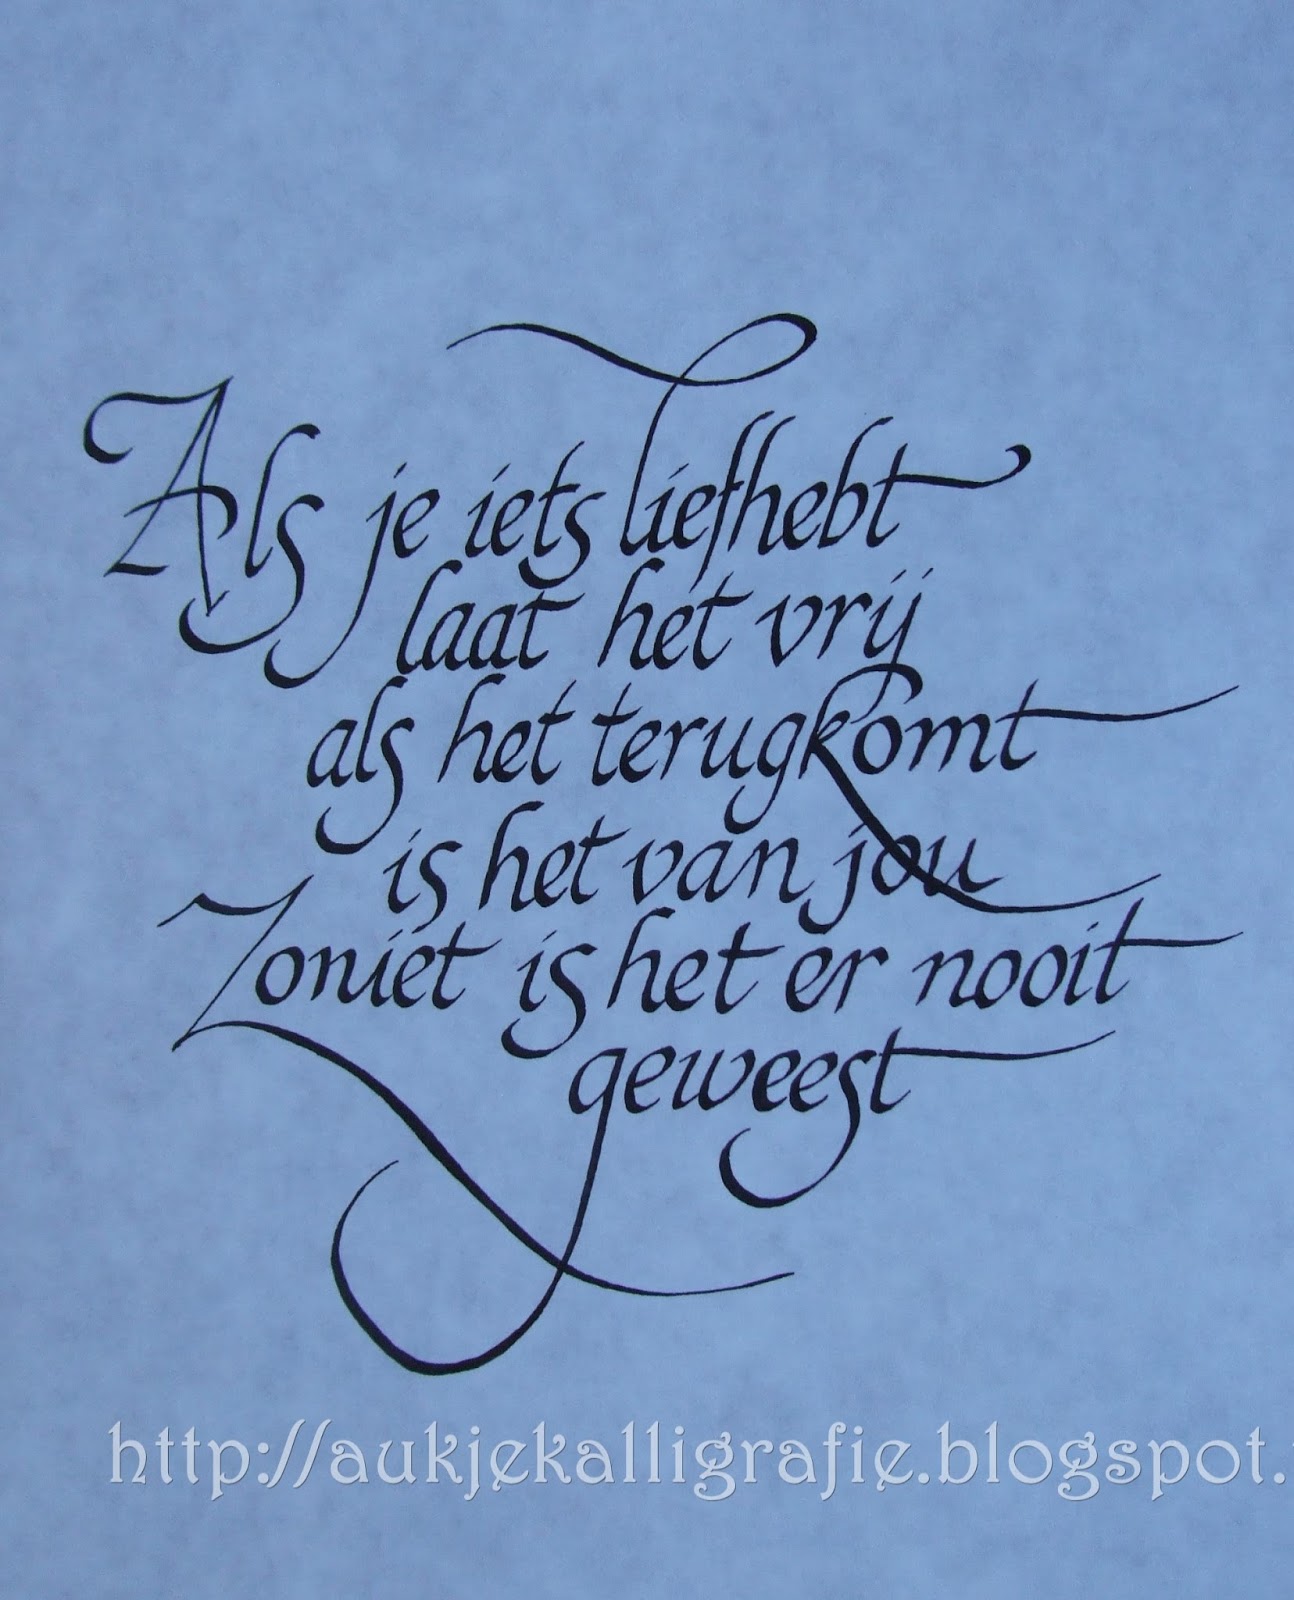 Als je iets liefhebt
laat het vrij
als het terugkomt
is het van jou
Zoniet is het er nooit
geweest
http://aukjekalligrafie.blogspot.